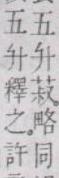 五升菽。略同
五升釋之。許